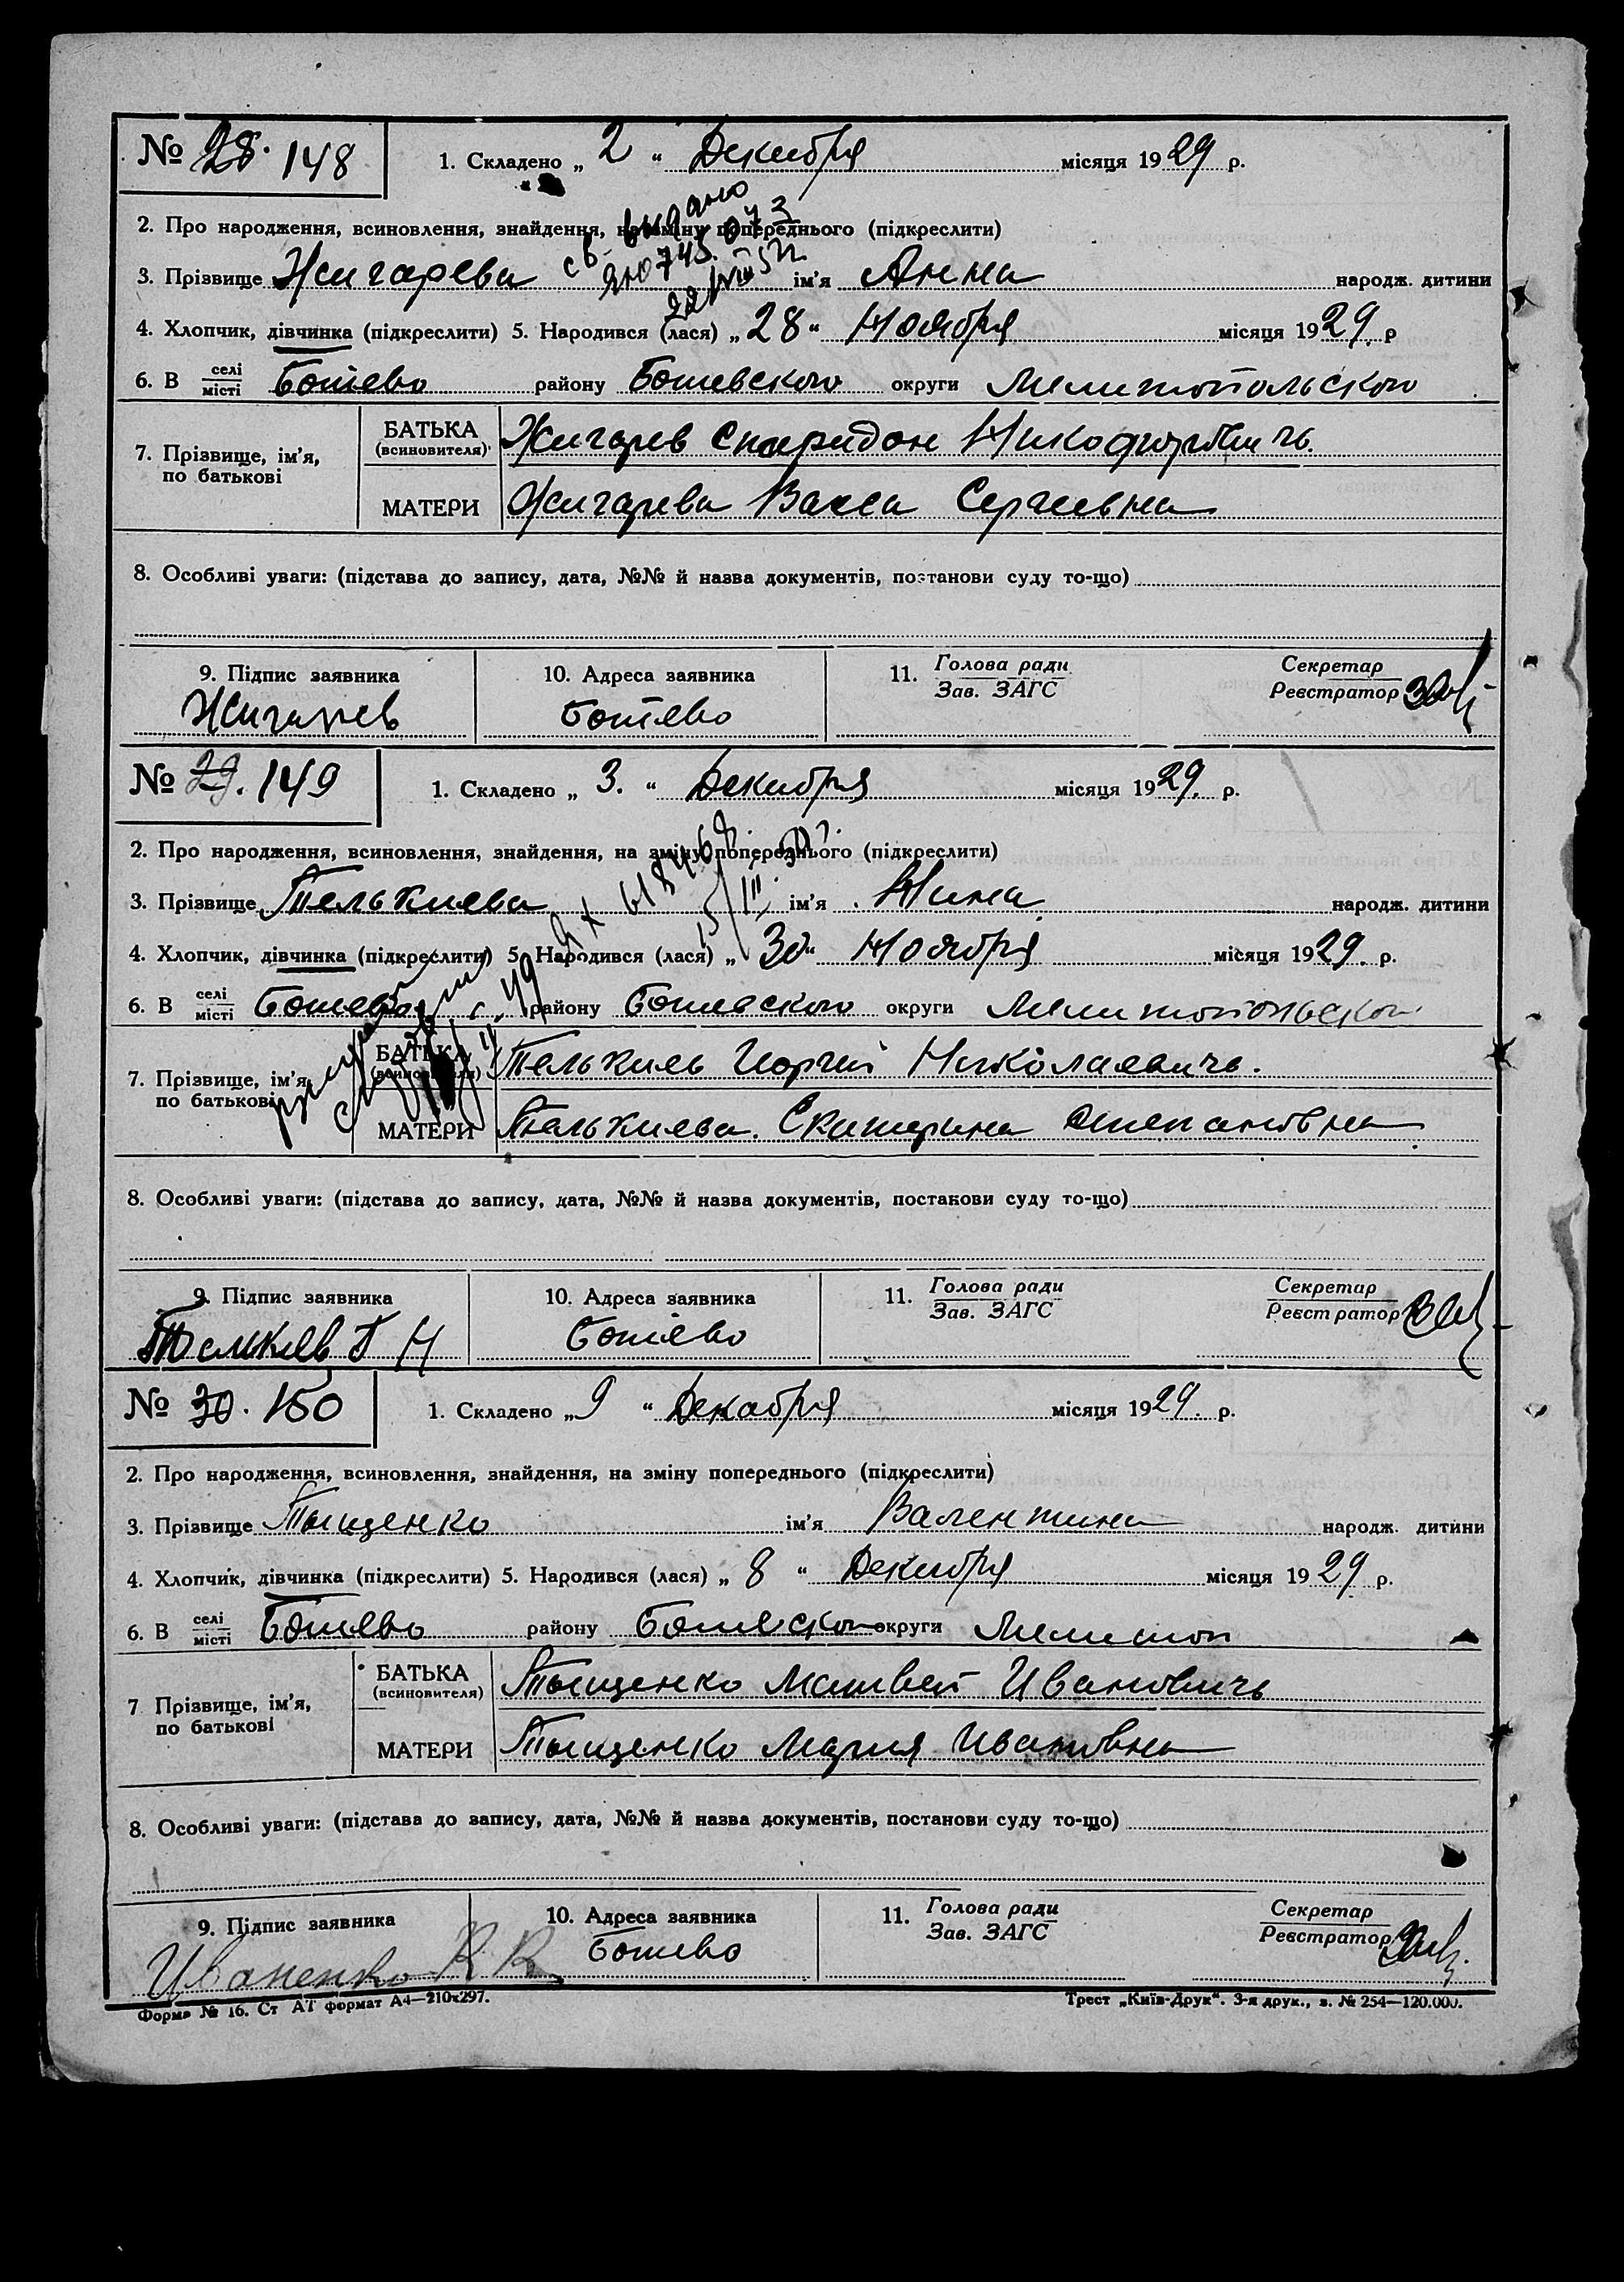 № 28. 148
1. Складено „ 2 “ Декабря місяця 1929 р.
св. выдано
2. Про народження, всиновлення, знайдення, на зміну попереднього (підкреслити)
3. Прізвище Жигарева ім'я Анна народж. дитини
4. Хлопчик, дівчинка (підкреслити) 5. Народився (лася) „ 28 “ Ноября місяця 1929. р
6. В селі місті Ботево району Ботевского округи Мелитопольского
7. Прізвище, ім'я, по батькові
БАТЬКА (всиновителя) Жигарев Спиридон
МАТЕРИ Жигарева Васса Сергеевна
8. Особливі уваги: (підстава до запису, дата, №№ й назва документів, постанови суду то-що)
9. Підпис заявника 10. Адреса заявника 11. Голова ради Зав. ЗАГС Секретар Реєстратор
Жигарев Ботево
№ 29. 149
1. Складено „ 3. “ Декабря місяця 1929. р.
2. Про народження, всиновлення, знайдення, на зміну попереднього (підкреслити)
3. Прізвище Телькиева ім'я Нина народж. дитини
4. Хлопчик, дівчинка (підкреслити) 5. Народився (лася) „ 30 “ Ноября місяця 1929. р.
6. В селі місті Ботево району Ботевского округи Мелитопольского
7. Прізвище, ім'я, по батькові
БАТЬКА (всиновителя) Николаевичь.
МАТЕРИ Телькиева. Екатерина Степановна
8. Особливі уваги: (підстава до запису, дата, №№ й назва документів, постанови суду то-що)
9. Підпис заявника 10. Адреса заявника 11. Голова ради Зав. ЗАГС Секретар Реєстратор
Ботево
№ 30. 150
1. Складено „ 9 “ Декабря місяця 1929. р.
2. Про народження, всиновлення, знайдення, на зміну попереднього (підкреслити)
3. Прізвище Тыщенко ім'я Валентина народж. дитини
4. Хлопчик, дівчинка (підкреслити) 5. Народився (лася) „ 8 “ Декабря місяця 1929. р.
6. В селі місті Ботево району Ботевского округи Мелитоп
7 Прізвище, ім'я, по батькові
БАТЬКА (всиновителя) Тыщенко Матвей Ивановичь
МАТЕРИ Тыщенко Мария Ивановна
8. Особливі уваги: (підстава до запису, дата, №№ й назва документів, постанови суду то-що)
9. Підпис заявника 10. Адреса заявника 11. Голова ради Зав. ЗАГС Секретар Реєстратор
Иваненко Ботево
Форма № 16. Ст АТ формат А4—210х297. Трест „Київ-Друк“. 3-я друк., з. № 254—120.000.